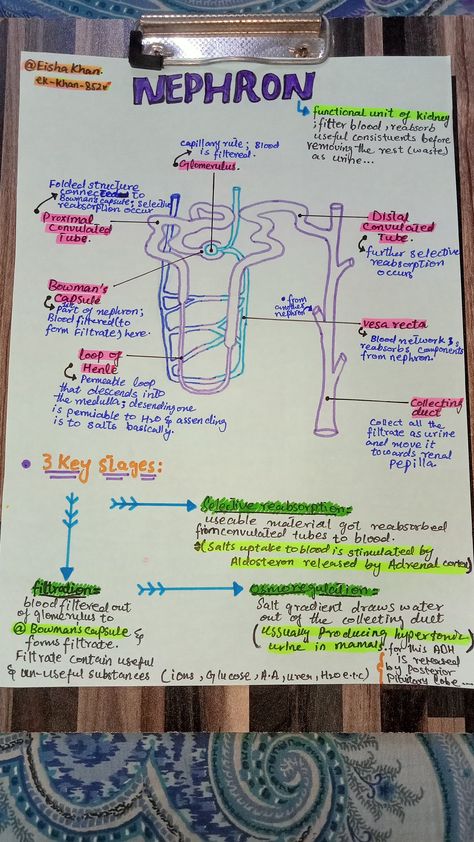 @Eisha Khan.
ek-khan-852
NEPHRON
functional unit of kidney
; filter blood, reabsorb
useful consistuents before
removing the rest (waste)
as urine...
capillary rute; Blood
is filtered.
Glomerulus
Folded structure
connected to
Bowmans capsule; selective
reabsorption occur
Proximal
Convulated
Tube.
Distal
Convulated
Tube.
further selective
reabsorption
occurs
Bowman's
Capsule
Part of nephron;
Blood filtered(to
form Filtrate) here.
• from
another
nephron
vesa recta
Blood networks;
reabsorbs components
from nephron.
loop of
Henle
Permeable loop
that descends into
the medulla; desending one
is permiable to H2O & assending
is to salts basically.
Collecting
duct
Collect all the
filtrate as urine
and move it
towards renal
Pepilla.
• 3 Key stages:
Selective reabsorption:
useable material got reabsorbed
from convulated tubes to blood.
(salts uptake to blood is stimulated by
Aldosteron released by Adrenal cortex)
filtration:
blood filtered out
of glomerulus to
@ Bowmans capsule &
forms filtrate.
Filtrate contain useful
& un-useful substances (ions, Glucose, A.A, urer, H2O e.t.c)
osmoregulation:
Salt gradient draws water
out of the collecting duct
(ussually Producing hypertonic
urine in mamals.
for this ADH
is released
by Posterior
Pituitary lobe....